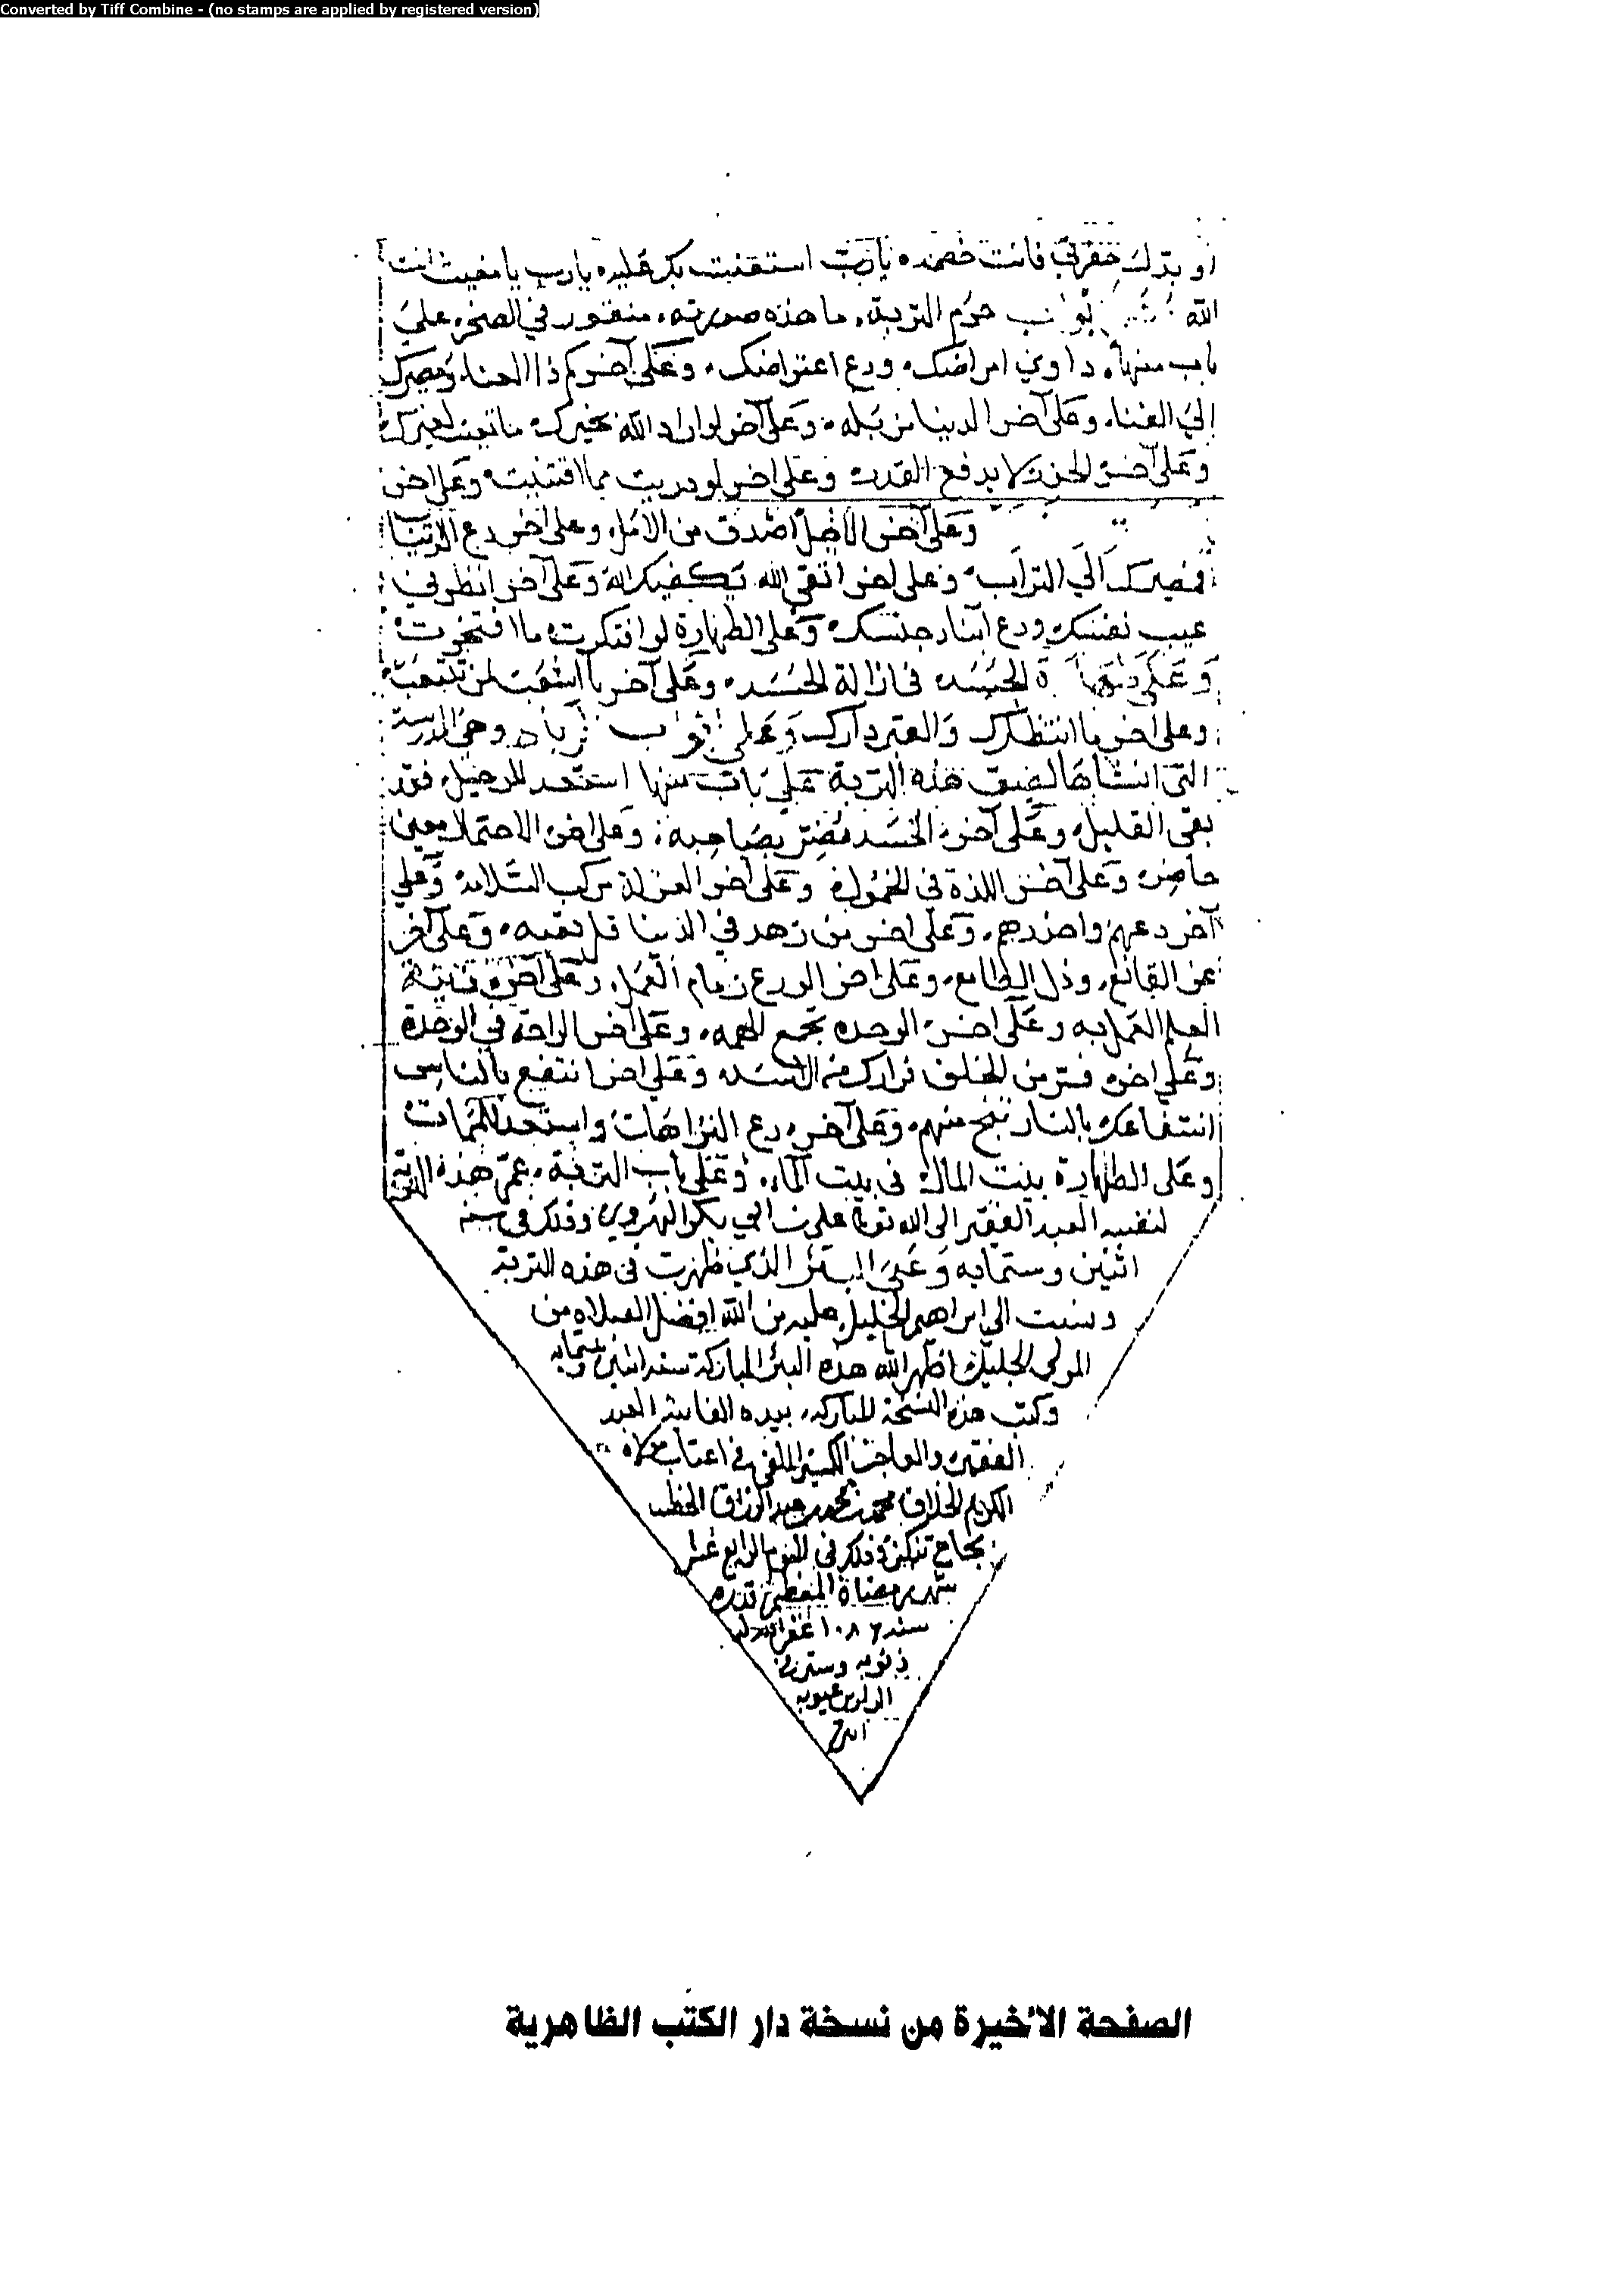 Converted by Tiff Combine - (no stamps are applied by registered version)
او بدلت حفرتي فانت خصمه يارب استعنت بك عليه يارب يا مغيث انت
الله حرم التربة ما هذه صورته منقور في الصخر على
باب منها داوي امراضك ودع اعتراضك وعلى آخر كم ذا العنا ومصيرك
الى الفنا وعلى آخر الدنيا وعلى آخر لو اراد الله بخيرك ما تعبت لغيرك
وعلى آخر الحزن لا يدفع القدر وعلى اخر لو دريت بما اقتنيت وعلى اخر
وعلى آخر الاجل اصدق من الامل وعلى اخر دع
فمصيرك الى التراب وعلى اخر اتقي الله يكفيك الله وعلى آخر انظر في
عيب نفسك ودع ابناء جنسك وعلى الطهارة لو افتكرت ما افتخرت
وعلى الجسد في ازالة الحسد وعلى آخر يا اشعث لمن تتبعت
وعلى اخر ما انتظارك والقبر دارك وعلى وهي المدرسة
التي انشاها لضيق هذه التربة على باب منها استعد للرحيل فقد
بقي القليل وعلى آخر الحسد مضر بصاحبه وعلى اخر الاحتمال معين
حاضر وعلى آخر اللذة في الخمول وعلى آخر العزلة مركب السلامة وعلى
آخر دعهم واحذرهم وعلى اخر من زهد في الدنيا قل تعبه وعلى آخر
عز القانع وذل الطامع وعلى اخر الورع زمام العمل وعلى آخر
العلم العمل به وعلى اخر الوحدة تجمع الهمة وعلى آخر الراحة في الوحدة
وعلى اخر فر من الخلق فرارك من الاسد وعلى اخر انتفع بالناس
انتفاعك بالنار تنج منهم وعلى آخر دع الترهات واستعد للممات
وعلى الطهارة بيت المال في بيت الماء وعلى باب التربة عمر هذه التربة
لنفسه العبد الفقير الى الله تعالى علي بن ابي بكر الهروي وذلك في سنه
اثنين وستمايه وعلى البئر الذي ظهرت في هذه التربة
ونسبت الى ابراهيم الخليل عليه من الله افضل الصلاة من
المولى الجليل اظهر الله هذه البئر المباركة سنة اثنين وستمايه
وكتب هذه النسخة المباركة بيده الفانية العبد
الفقير والعاجز الكسير الملقى في اعتاب مولاه
الكريم الخلاق محمد بن محمد بن عبد الرزاق الخطيب
بجامع تنكز وذلك في اليوم الرابع عشر
شهر رمضان المعظم قدره
سنة ١٠٨٢ غفر الله له
ذنوبه وستر في
الدارين عيوبه
امين
الصفحة الأخيرة من نسخة دار الكتب الظاهرية